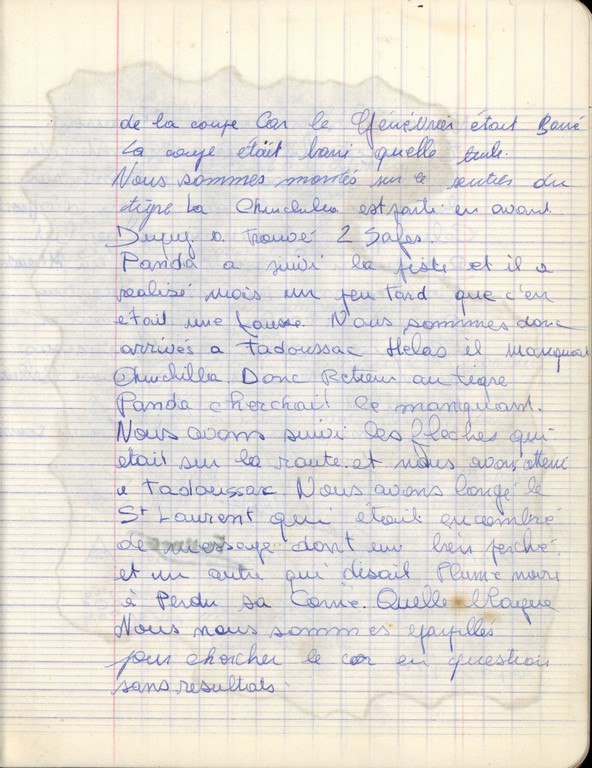 de la coupe Car le Génévrier était Barré
La coupe était barré quelle tuile.
Nous sommes montés sur le sentier du
tigre La Chinchilla est parti en avant.
a Trouvé 2 Safes.
Panda a suivi la piste et il a
réalisé mais un peu tard que c'en
était une fausse. Nous sommes donc
arrivés a Tadoussac Helas il manquai
Chinchilla. Donc Retour au tigre
Panda cherchait le manquant.
Nous avons suivi les flèches qui
était sur la route. et nous avons atteri
a Tadoussac. Nous avons longé le
St Laurent qui était encombré
de message dont un bien perché.
et un autre qui disait Plume noire
à Perdu sa Corne. Quelle blague
Nous nous sommes eparpilles
pour chercher le cor en question
sans resultats.